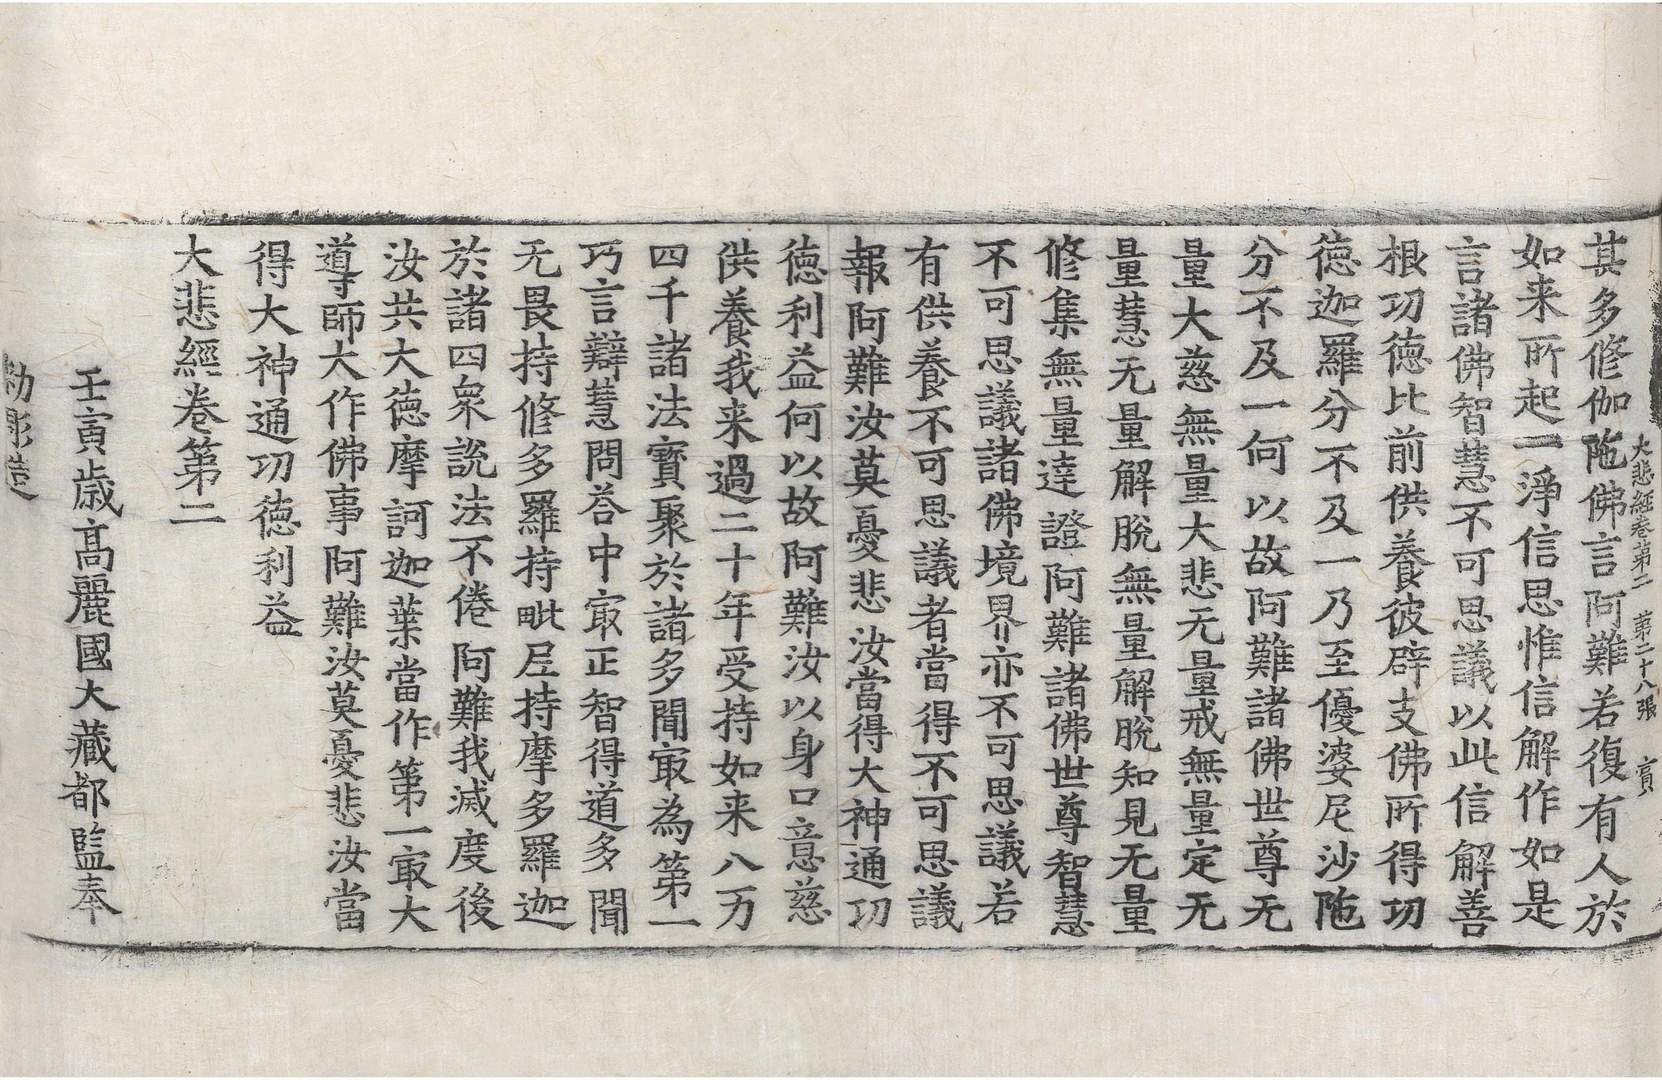 大悲經卷第二 第二十八張 賓
其多修伽陁佛言阿難若復有人於
如来所起一淨信思惟信解作如是
言諸佛智慧不可思議以此信解善
根功德比前供養彼辟支佛所得功
德迦羅分不及一乃至優婆尼沙陁
分不及一何以故阿難諸佛世尊无
量大慈無量大悲无量戒無量定无
量慧无量解脫無量解脫知見无量
修集無量達證阿難諸佛世尊智慧
不可思議諸佛境界亦不可思議若
有供養不可思議者當得不可思議
報阿難汝莫憂悲汝當得大神通功
德利益何以故阿難汝以身口意慈
供養我来過二十年受持如来八万
四千諸法寶聚於諸多聞㝡為第一
巧言辯慧問荅中㝡正智得道多聞
无畏持修多羅持毗尼持摩多羅迦
於諸四衆說法不倦阿難我滅度後
汝共大德摩訶迦葉當作第一㝡大
導師大作佛事阿難汝莫憂悲汝當
得大神通功德利益
大悲經卷第二
壬寅歲高麗國大藏都監奉
勑彫造